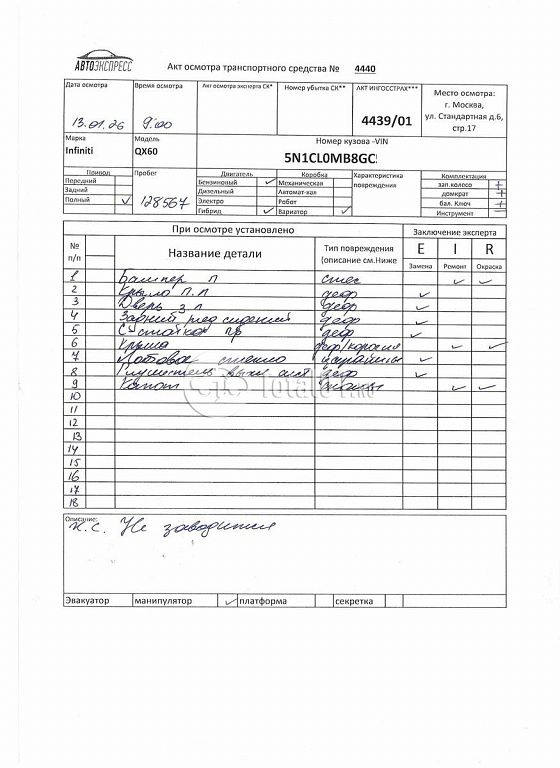 АВТОЭКСПРЕСС
Акт осмотра транспортного средства № 4440
Дата осмотра
13.01.26
Время осмотра
9:00
Акт осмотра эксперта СК*
Номер убытка СК**
АКТ ИНГОССТРАХ***
4439/01
Место осмотра:
г. Москва,
ул. Стандартная д.6,
стр.17
Марка
Infiniti
Модель
QX60
Номер кузова -VIN
5N1CL0MB8GC
Привод
Передний
Задний
Полный
Пробег
128567
Двигатель
Бензиновый
Дизельный
Электро
Гибрид
Коробка
Механическая
Автомат-кая
Робот
Вариатор
Характеристика
повреждения
Комплектация
зап.колесо +
домкрат +
бал. Ключ +
Инструмент
При осмотре установлено
Заключение эксперта
№
п/п
Название детали
Тип повреждения
(описание см.Ниже
E I R
Замена Ремонт Окраска
1 Бампер П
2 Крыло П.Л деф
3 Дверь З Л деф
4 Задний ряд сидений деф
5 деф
6 Крыша деф/коррозия
7 Лобовое стекло царапины
8 Глушитель деф
9 Капот
10
11
12
13
14
15
16
17
18
Totalcar.ru
Описание:
Н.С. Не заводится
Эвакуатор манипулятор платформа секретка